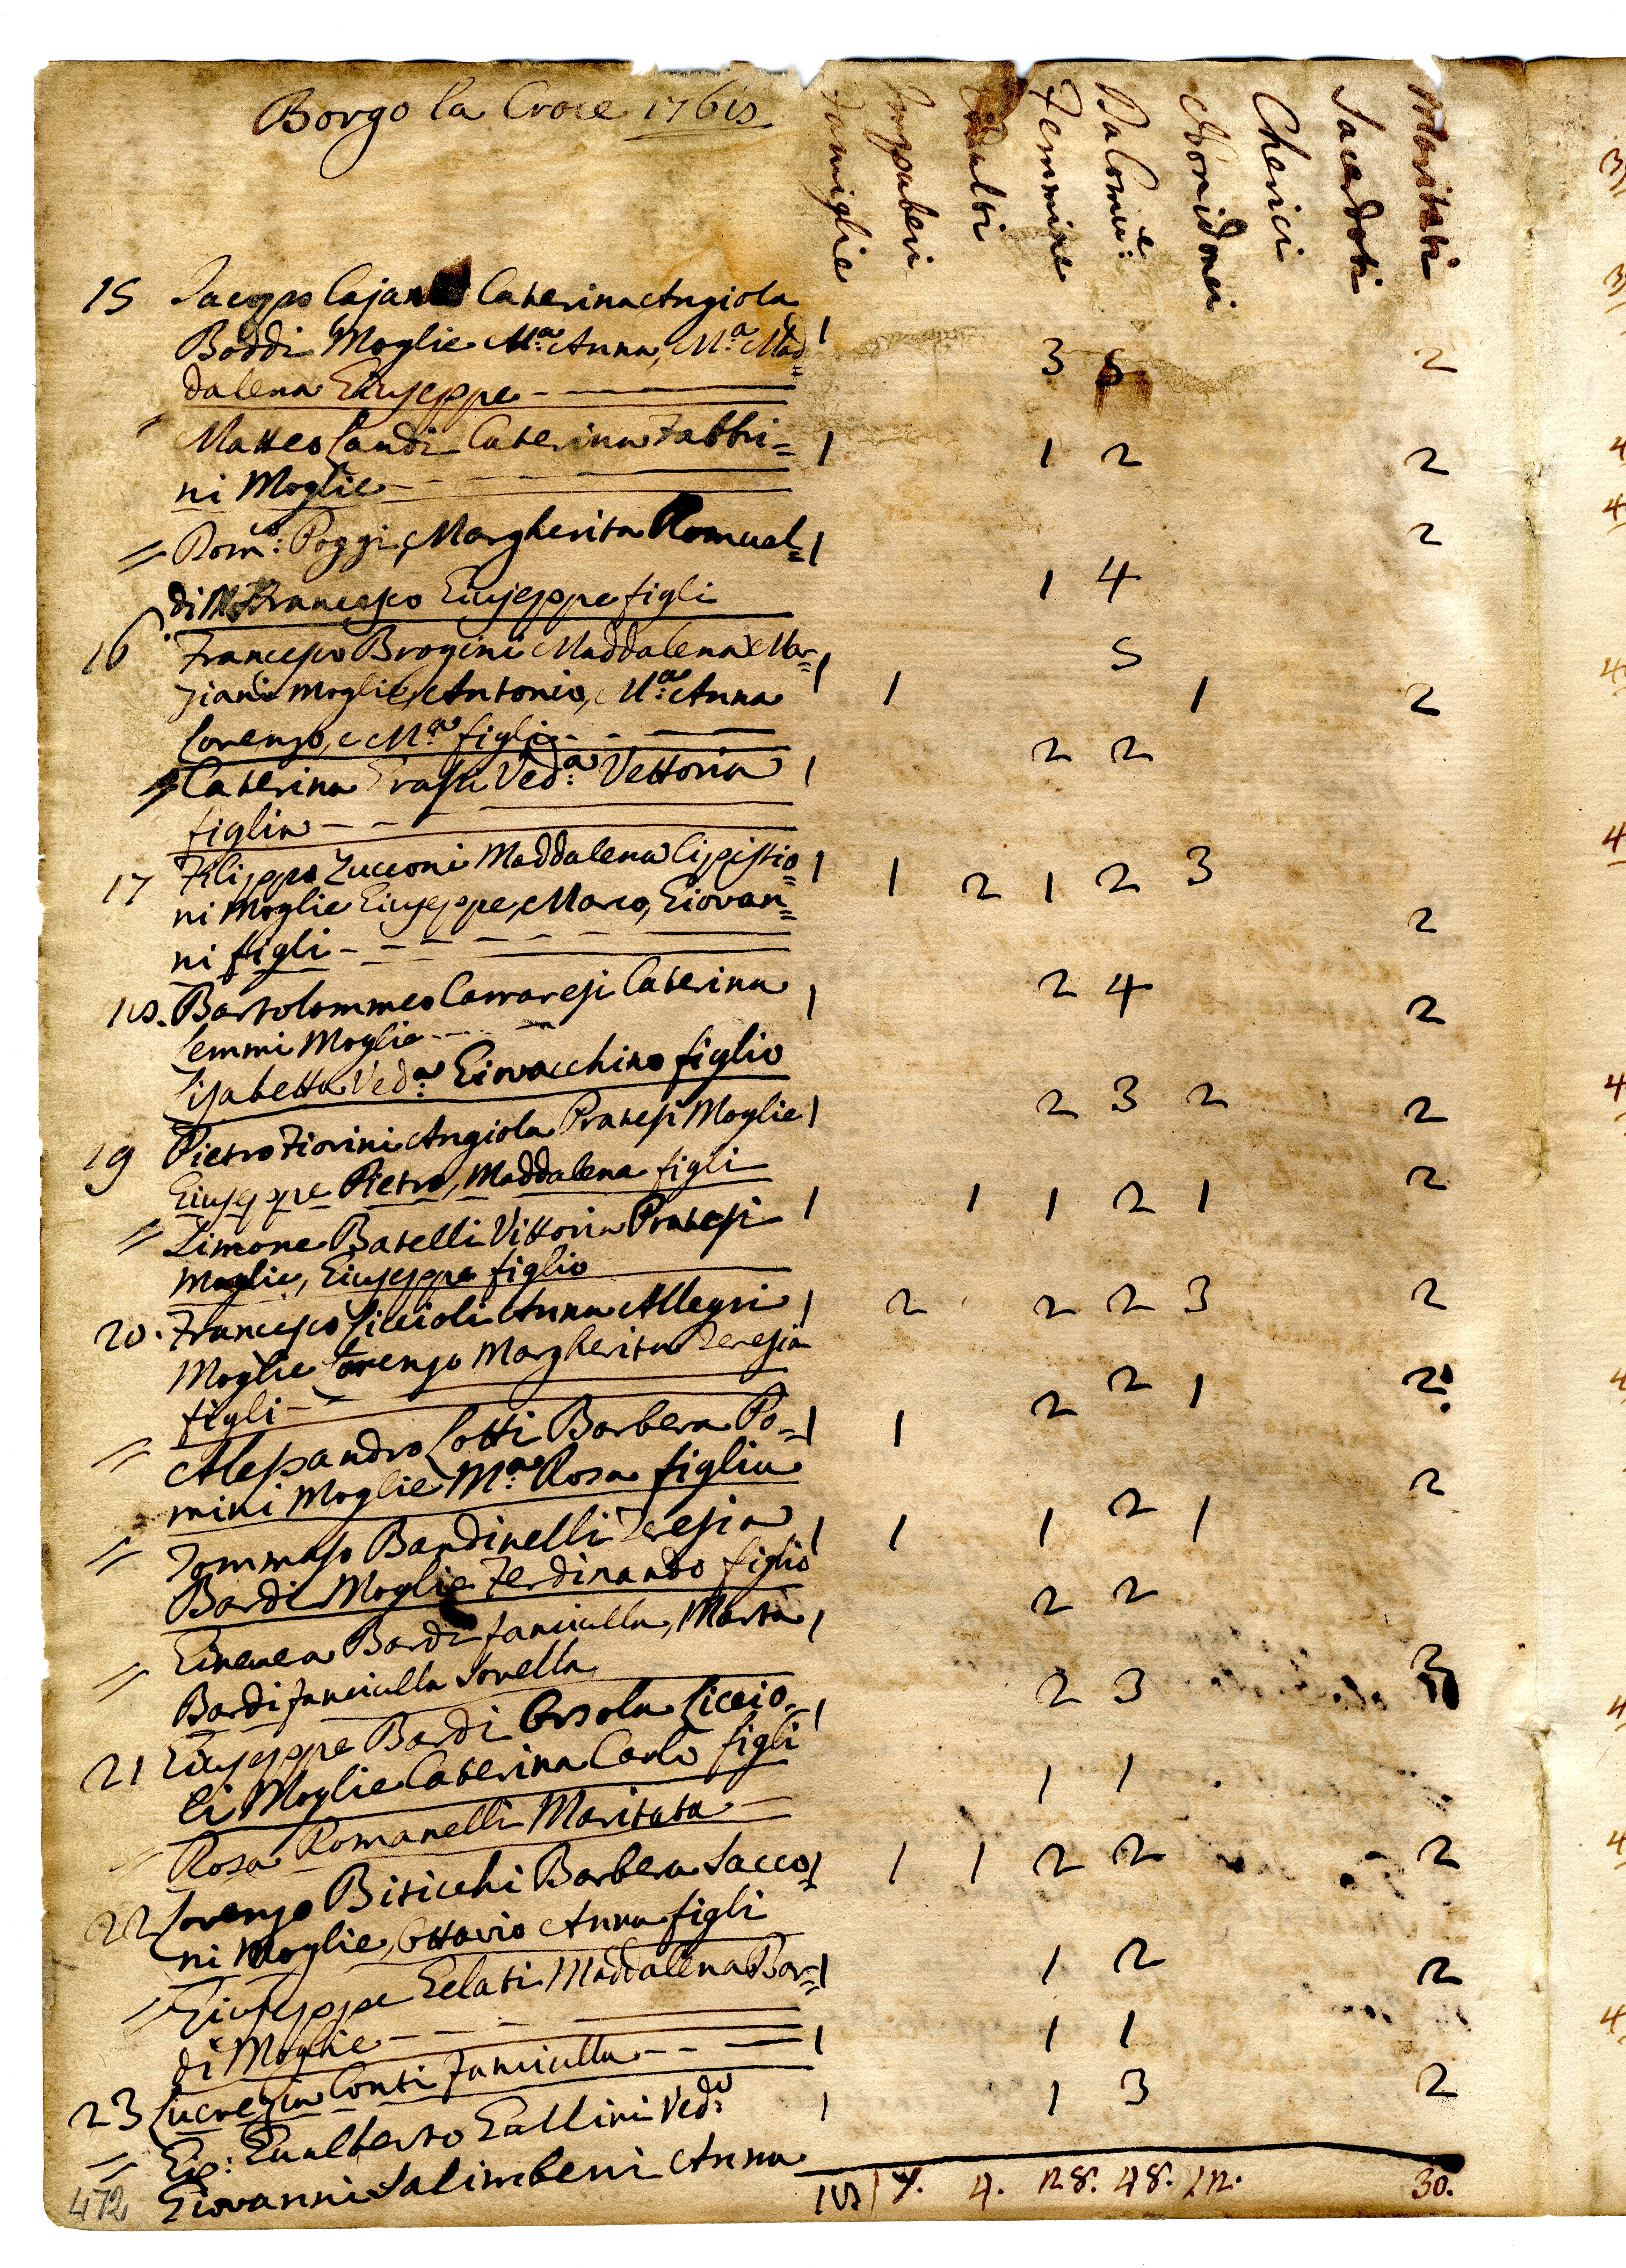 Borgo la Croce 1768
Famiglie Impuberi Adulti Femmine Dalomu:e Nonidonei Cherici Sacerdoti Maritati
15 Jacopo Cajani Caterina Angiola
Boddi Moglie M:a Anna, M:a Mad= 1 3 5 2
dalena Giuseppe
Matteo Landi Caterina Fabbri= 1 1 2 2
ni Moglie
= Dom:co Poggi, Margherita Romual= 1 2
di Francesco Giuseppe figli 1 4
16 Francesco Brogini Maddalena Mar= 1 5
ziani Moglie, Antonio, M:a Anna 1 1 2
Lorenzo, e M:a figli 2 2
= Caterina Frasti Ved:a Vettoria 1
figlia
17 Filippo Zucconi Maddalena Cipistio= 1 1 2 1 2 3
ni Moglie Giuseppe, Marco, Giovan= 2
ni figli
18. Bartolommeo Carraresi Caterina 1 2 4 2
Lemmi Moglie
Lisabetta Ved:a Giovacchino figlio
19 Pietro Fiorini Angiola Pratesi Moglie 1 2 3 2 2
Giuseppe Pietro, Maddalena figli
= Simone Batelli Vittoria Pratesi 1 1 1 2 1 2
Moglie, Giuseppe figlio
20. Francesco Liccioli Anna Allegri 1 2 2 2 3 2
Moglie Lorenzo Margherita Teresia
figli
= Alessandro Lotti Barbera Po= 1 1 2 2 1 2
mini Moglie M:a Rosa figlia
= Tommaso Bandinelli Teresia 1 1 1 2 1 2
Bardi Moglie Ferdinando figlio
= Ginevera Bardi fanciulla, Marta 1 2 2
Bardi fanciulla Sorella
21 Giuseppe Bardi Orsola Liccio= 1 2 3 2
li Moglie Caterina Carlo figli
= Rosa Romanelli Maritata 1 1
22 Lorenzo Bisicchi Barbera Sacco= 1 1 1 2 2 2
ni Moglie, Ottavio Anna figli
= Giuseppe Gelati Maddalena Bar= 1 1 2 2
di Moglie
23 Lucrezia Conti fanciulla 1 1 1
= Gio: Gualberto Gallini Ved:o 1 1 3 2
Giovanni Salimbeni Anna
472 18 7. 4. 28. 48. 12. 30.